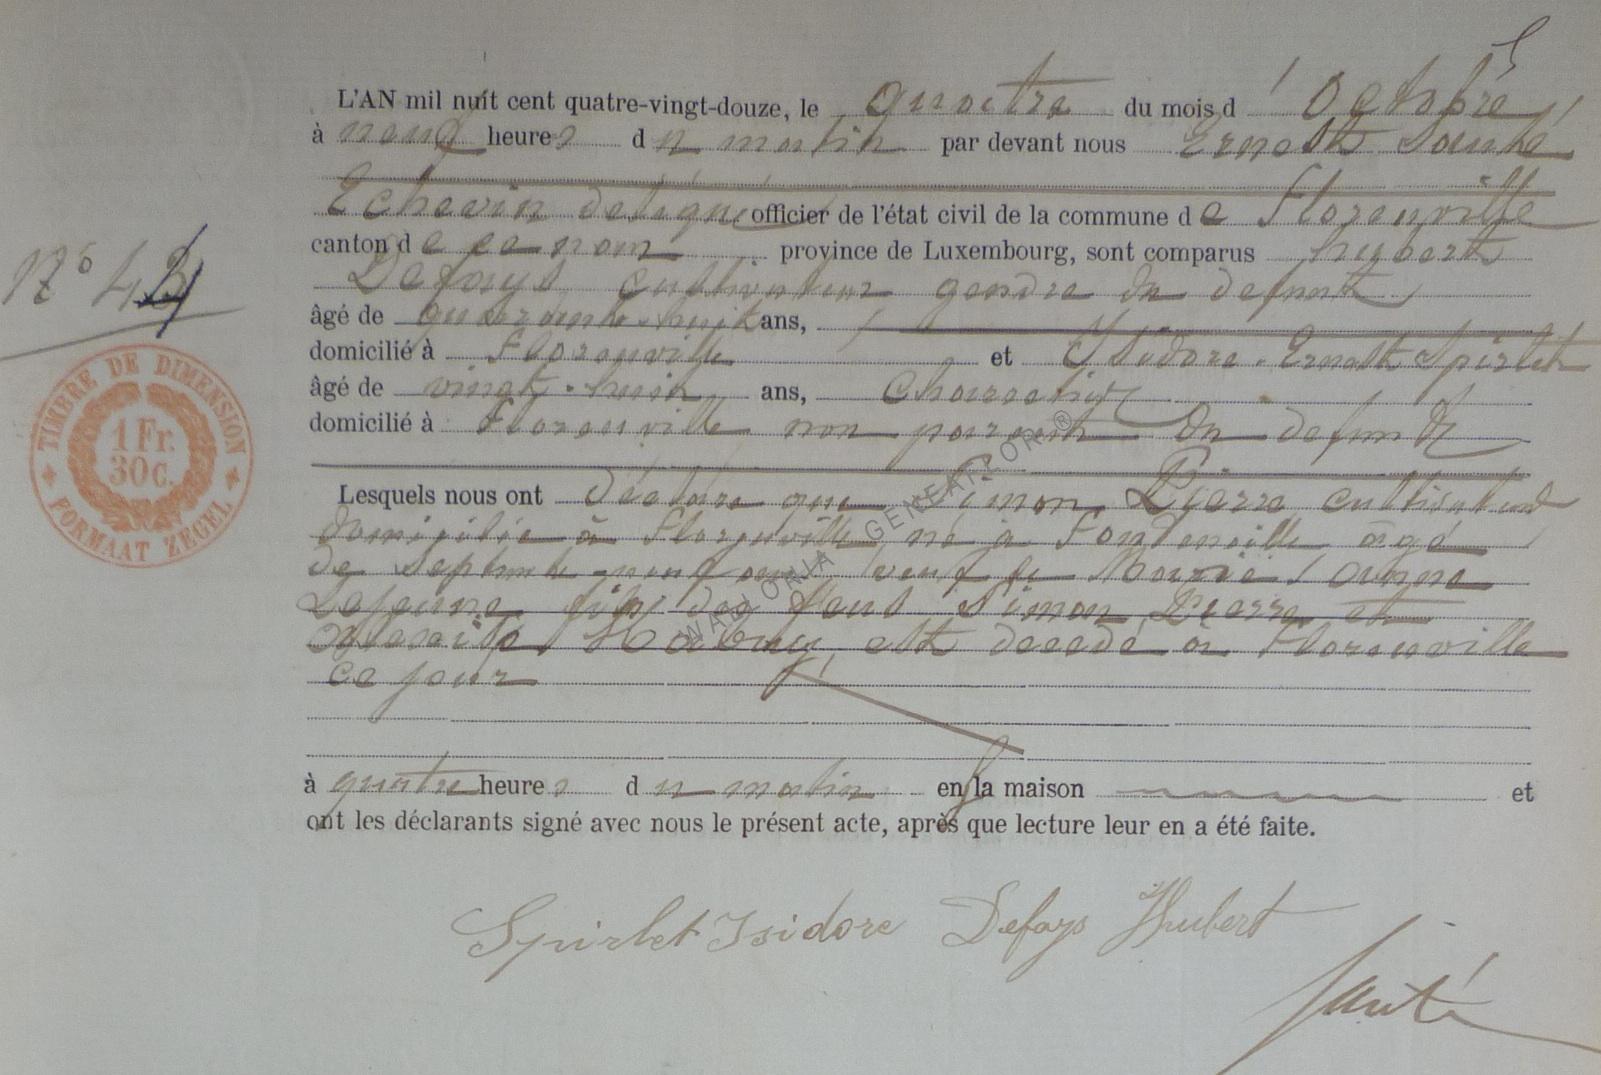 L'AN mil huit cent quatre-vingt-douze, le quatre du mois d'Octobre
à neuf heures du matin par devant nous Ernest Santé
Echevin délégué officier de l'état civil de la commune de Florenville
canton de ce nom province de Luxembourg, sont comparus hubert
Defays cultivateur gendre du defunt
âgé de quarante-huit ans,
domicilié à Florenville et Isidore-Ernest Spirlet
âgé de vingt-huit ans,
domicilié à Florenville non parent du defunt
Lesquels nous ont déclaré que Simon Pierre cultivateur
domicilié à Florenville né à Fontenoille âgé
de Septante neuf ans veuf de Marie Jeanne
Lejeune fils des feus Simon Pierre et
est decedé a Florenville
ce jour
à quatre heures du matin en la maison et
ont les déclarants signé avec nous le présent acte, après que lecture leur en a été faite.
Spirlet Isidore Defays Hubert
Santé
N°
TIMBRE DE DIMENSION
1 Fr.
30 C.
FORMAAT ZEGEL
WALLONIA GENEALOR ®